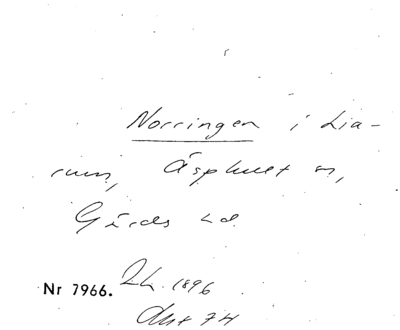 Norringen i Lia-
rum, Äsphult sn,
Gärds hd.
Nr 7966. JL. 1896
Akt 74